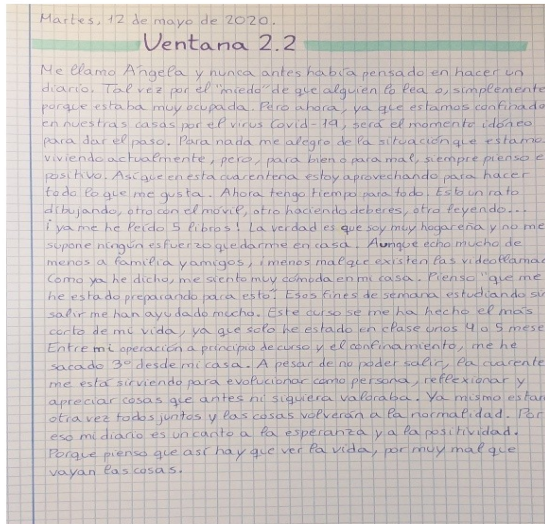 Martes, 12 de mayo de 2020.
Ventana 2.2
Me llamo Ángela y nunca antes había pensado en hacer un
diario. Tal vez por el "miedo" de que alguien lo lea o, simplemente
porque estaba muy ocupada. Pero ahora, ya que estamos confinado
en nuestras casas por el virus Covid-19, será el momento idóneo
para dar el paso. Para nada me alegro de la situación que estamo
viviendo actualmente, pero, para bien o para mal, siempre pienso e
positivo. Así que en esta cuarentena estoy aprovechando para hacer
todo lo que me gusta. Ahora tengo tiempo para todo. Estoy un rato
dibujando, otro con el móvil, otro haciendo deberes, otro leyendo...
¡ya me he leído 5 libros! La verdad es que soy muy hogareña y no me
supone ningún esfuerzo quedarme en casa. Aunque echo mucho de
menos a familia y amigos, ¡menos mal que existen las videollamad
Como ya he dicho, me siento muy cómoda en mi casa. Pienso "que me
he estado preparando para esto". Esos fines de semana estudiando si
salir me han ayudado mucho. Este curso se me ha hecho el más
corto de mi vida, ya que solo he estado en clase unos 4 o 5 mese
Entre mi operación a principio de curso y el confinamiento, me he
sacado 3º desde mi casa. A pesar de no poder salir, la cuarente
me está sirviendo para evolucionar como persona, reflexionar y
apreciar cosas que antes ni siquiera valoraba. Ya mismo estar
otra vez todos juntos y las cosas volverán a la normalidad. Por
eso mi diario es un canto a la esperanza y a la positividad.
Porque pienso que así hay que ver la vida, por muy mal que
vayan las cosas.